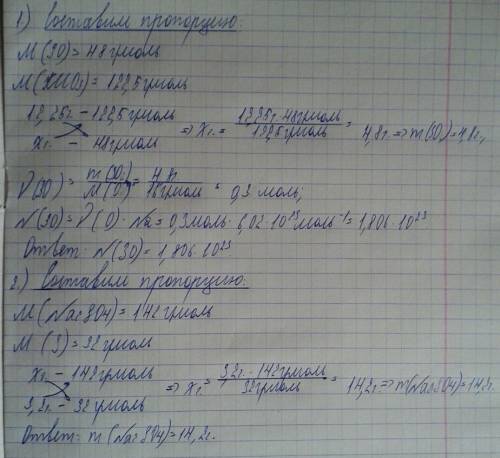 1) Составим пропорцию:
M(3O) = 48г/моль
M(KClO3) = 122,5г/моль
12,25г. – 122,5г/моль
xг. – 48г/моль => xг. = 12,25г·48г/моль / 122,5г/моль = 4,8г => m(3O) = 4,8г.,
ν(3O) = m(3O) / M(O) = 4,8г / 16г/моль = 0,3 моль;
N(3O) = ν(O)·Na = 0,3моль·6,02·10²³моль⁻¹ = 1,806·10²³
Ответ: N(3O) = 1,806·10²³.
2.) Составим пропорцию:
M(Na2SO4) = 142г/моль
M(S) = 32г/моль
xг. – 142г/моль
3,2г. – 32г/моль => xг. = 3,2г.·142г/моль / 32г/моль = 14,2г. => m(Na2SO4) = 14,2г.
Ответ: m(Na2SO4) = 14,2г.